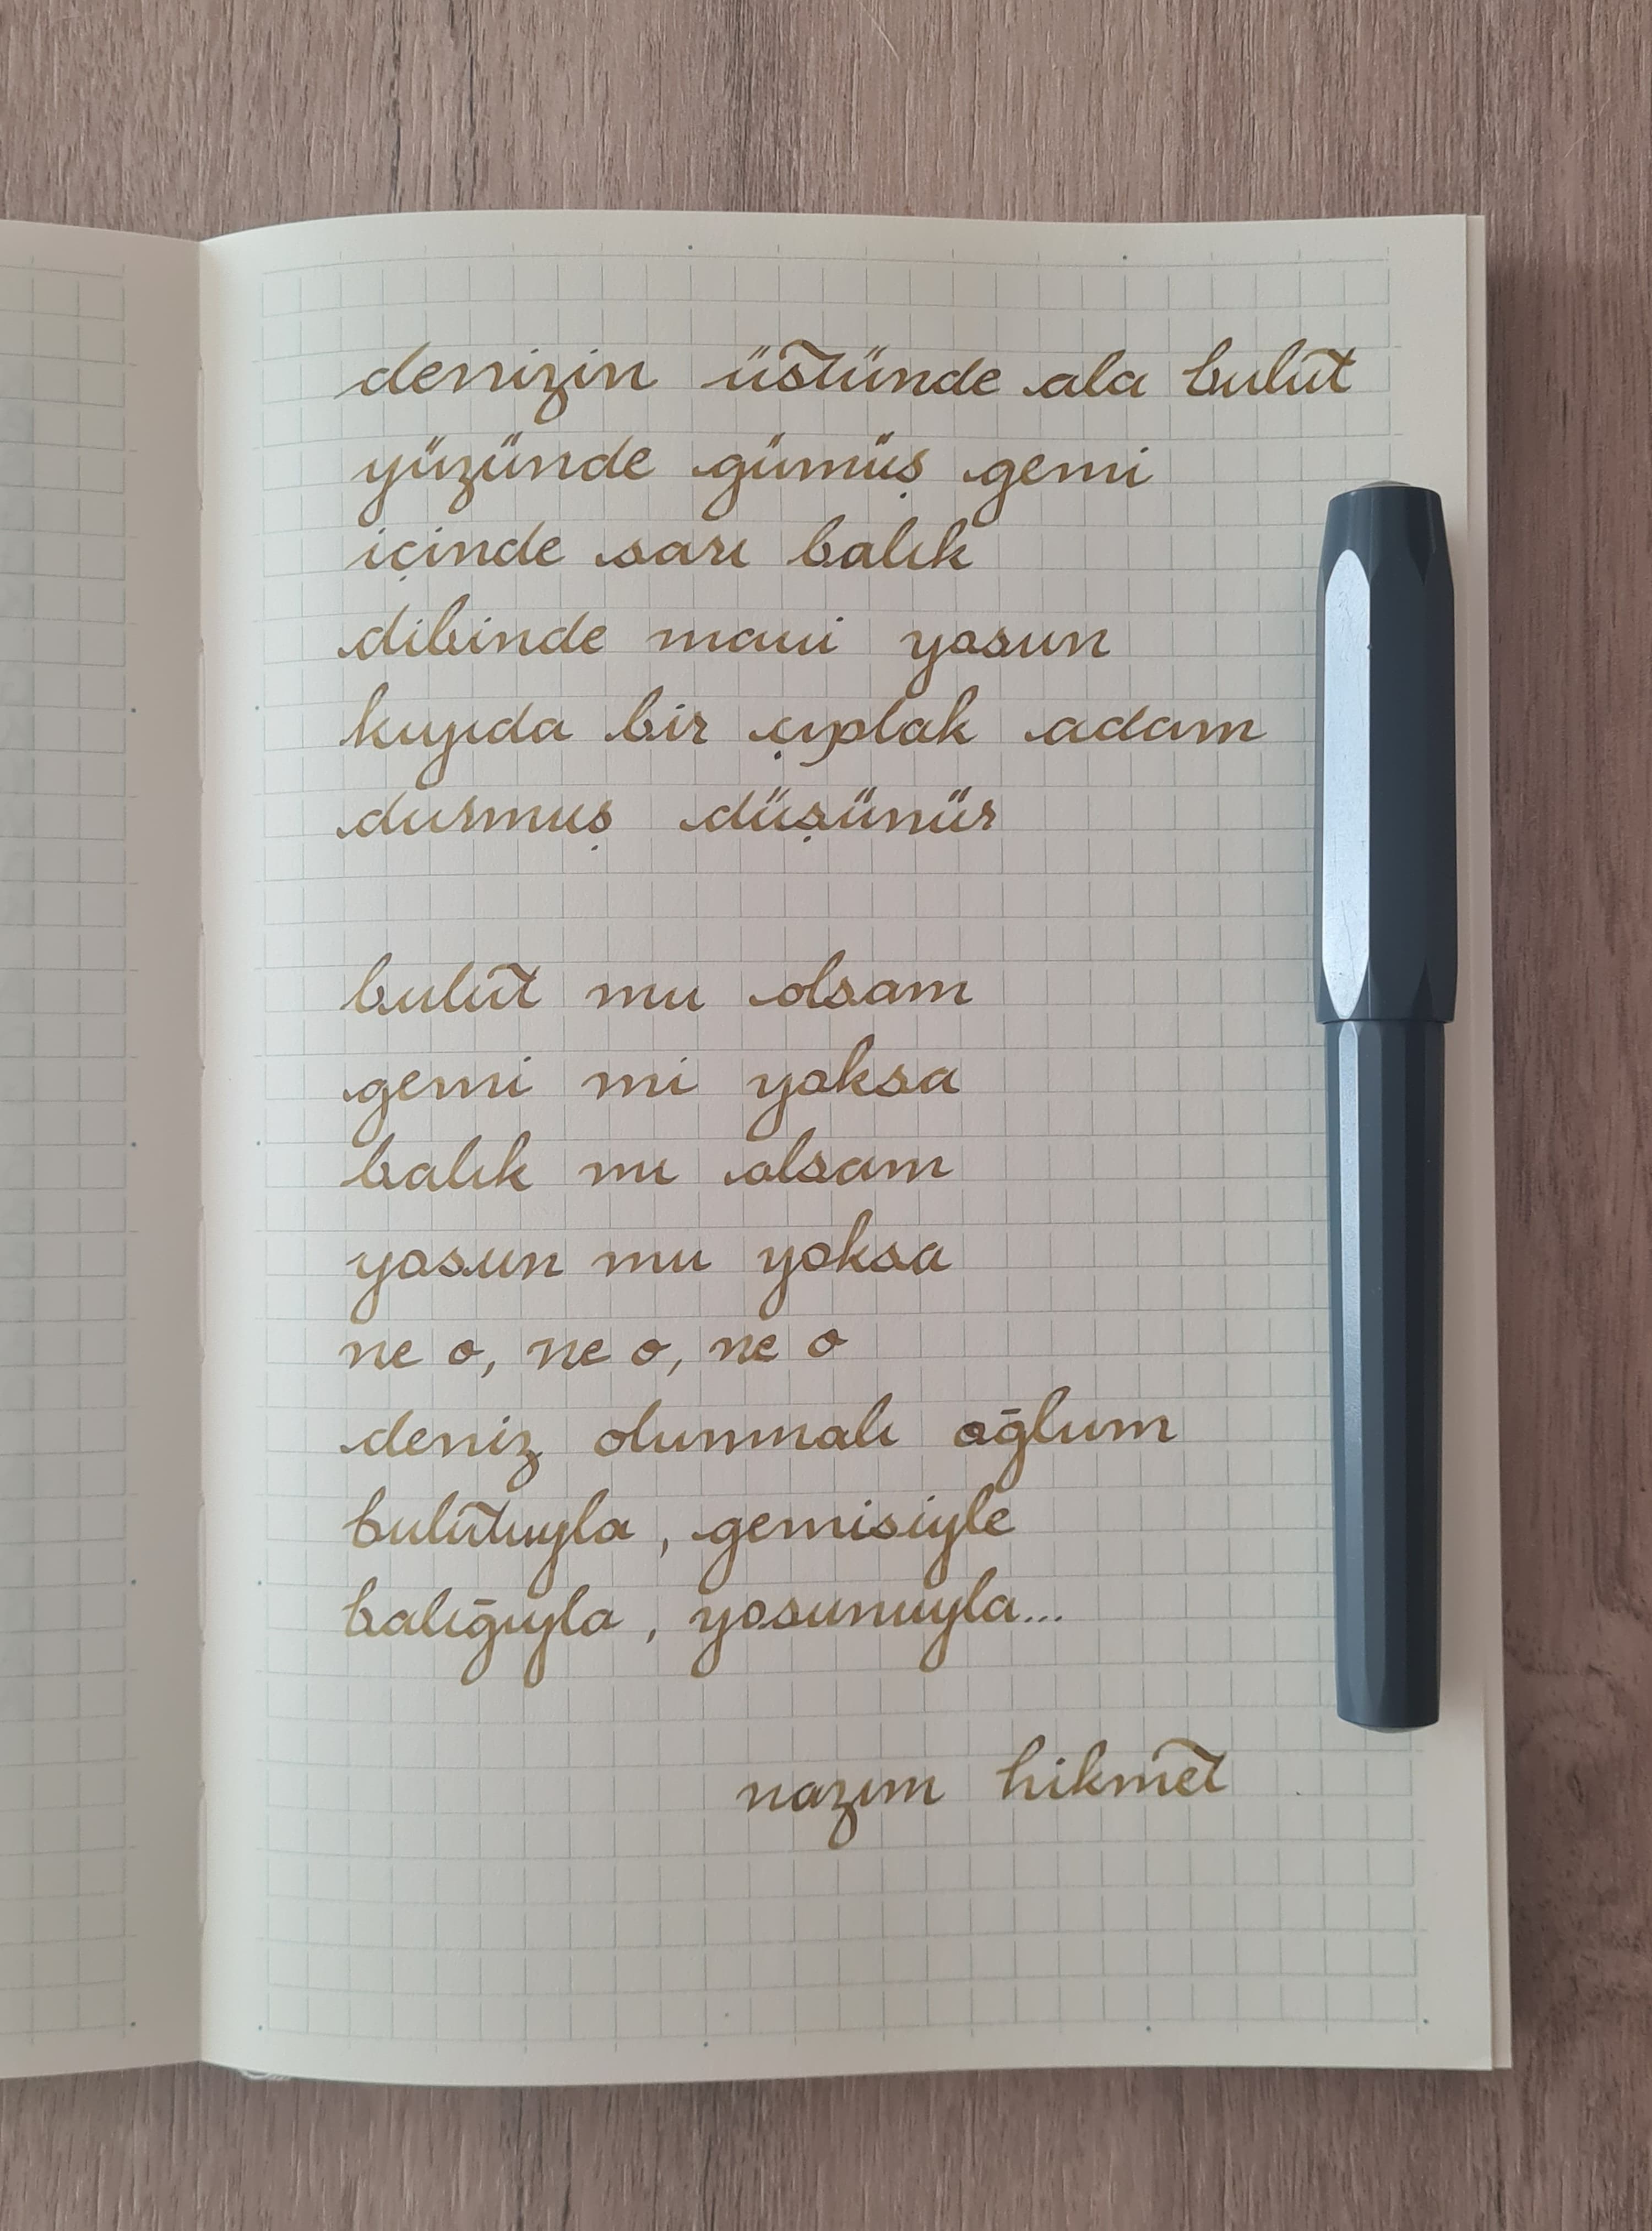 denizin üstünde ala bulut
yüzünde gümüş gemi
içinde sarı balık
dibinde mavi yosun
kıyıda bir çıplak adam
durmuş düşünür
bulut mu olsam
gemi mi yoksa
balık mı olsam
yosun mu yoksa
ne o, ne o, ne o
deniz olunmalı oğlum
bulutuyla, gemisiyle
balığıyla, yosunuyla...
nazım hikmet